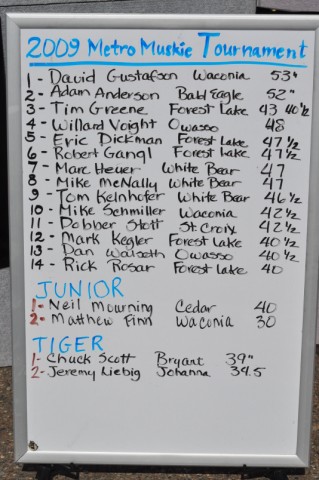 2009 Metro Muskie Tournament
1 - David Gustafson Waconia 53"
2 - Adam Anderson Bald Eagle 52"
3 - Tim Greene Forest Lake 43 40 1/2
4 - Willard Voight Owasso 48
5 - Eric Dickman Forest Lake 47 1/2
6 - Robert Gangl Forest Lake 47 1/2
7 - Marc Heuer White Bear 47
8 - Mike McNally White Bear 47
9 - Tom Kelnhofer White Bear 46 1/2
10 - Mike Schmiller Waconia 42 1/2
11 - Dobber Stott St Croix 42 1/2
12 - Mark Kegler Forest Lake 40 1/2
13 - Dan Walseth Owasso 40 1/2
14 - Rick Rosar Forest Lake 40
JUNIOR
1 - Neil Mourning Cedar 40
2 - Matthew Finn Waconia 30
TIGER
1 - Chuck Scott Bryant 39"
2 - Jeremy Liebig Johanna 34.5